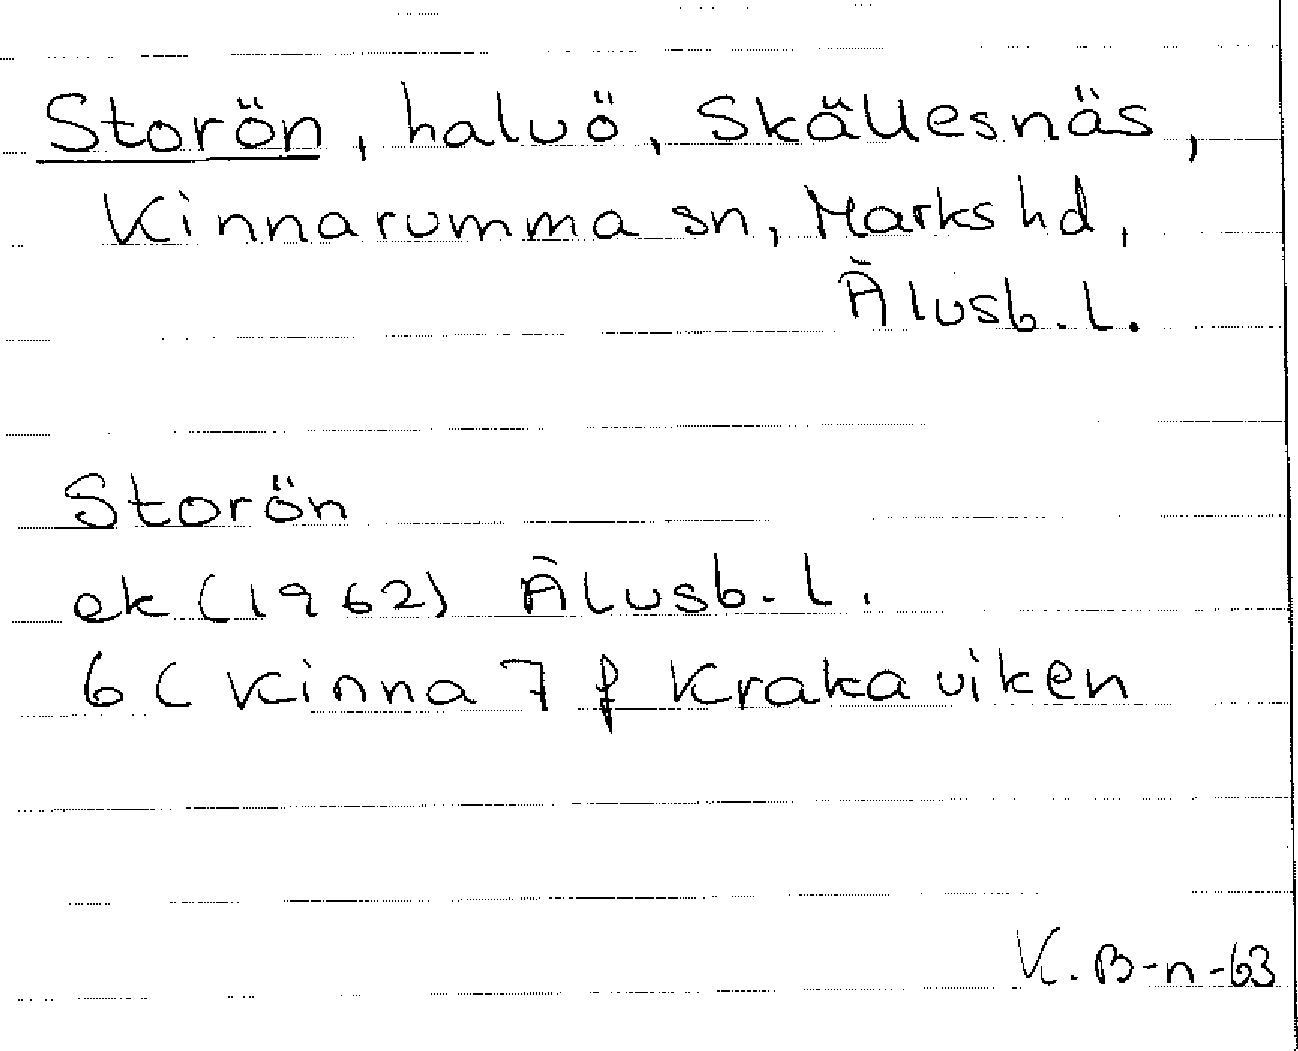 Storön, halvö, Skällesnäs,
Kinnarumma sn, Marks hd,
Älvsb. l.
Storön
ek (1962) Älvsb. l.
6 C Kinna 7 f Krakaviken
K. B-n -63